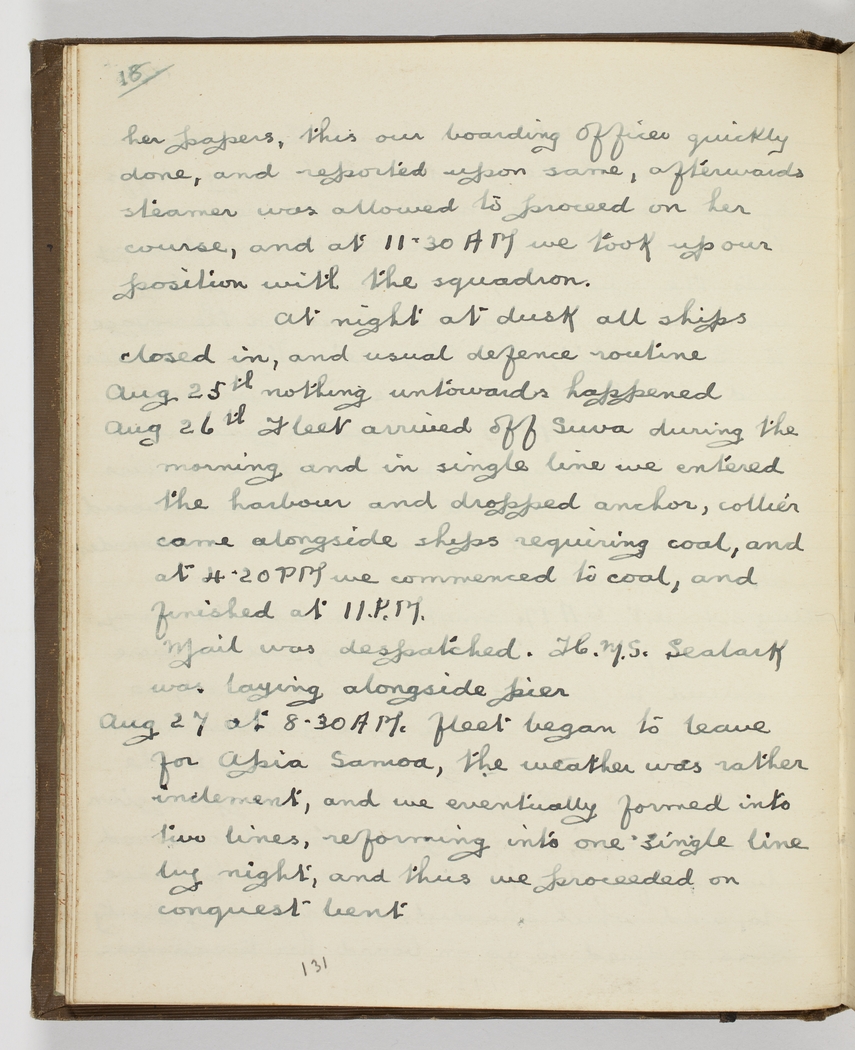 18
her papers, this our boarding officer quickly
done, and reported upon same, afterwards
steamer was allowed to proceed on her
course, and at 11-30 AM we took up our
position with the squadron.
At night at dusk all ships
closed in, and usual defence routine
Aug 25th nothing untowards happened
Aug 26th Fleet arrived off Suva during the
morning and in single line we entered
the harbour and dropped anchor, collier
came alongside ships requiring coal, and
at 4-20 PM we commenced to coal, and
finished at 11.P.M.
Mail was despatched. H.M.S. Sealark
was laying alongside pier
Aug 27 at 8-30 AM. fleet began to leave
for Apia Samoa, the weather was rather
inclement, and we eventually formed into
two lines, reforming into one single line
by night, and thus we proceeded on
conquest bent
131